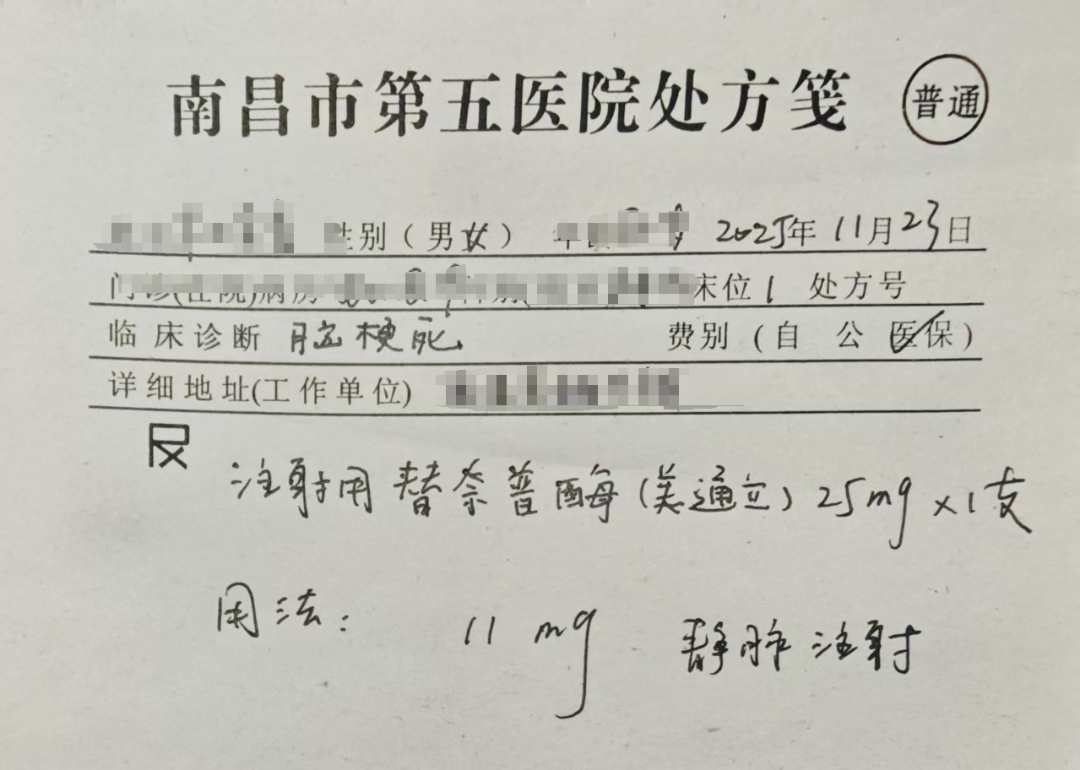 南昌市第五医院处方笺 普通
性别(男女) 2025年11月23日
床位1 处方号
临床诊断 脑梗死 费别(自 公 医保)
详细地址(工作单位)
R
注射用替奈普酶(美通立)25mg×1支
用法: 11mg 静脉注射